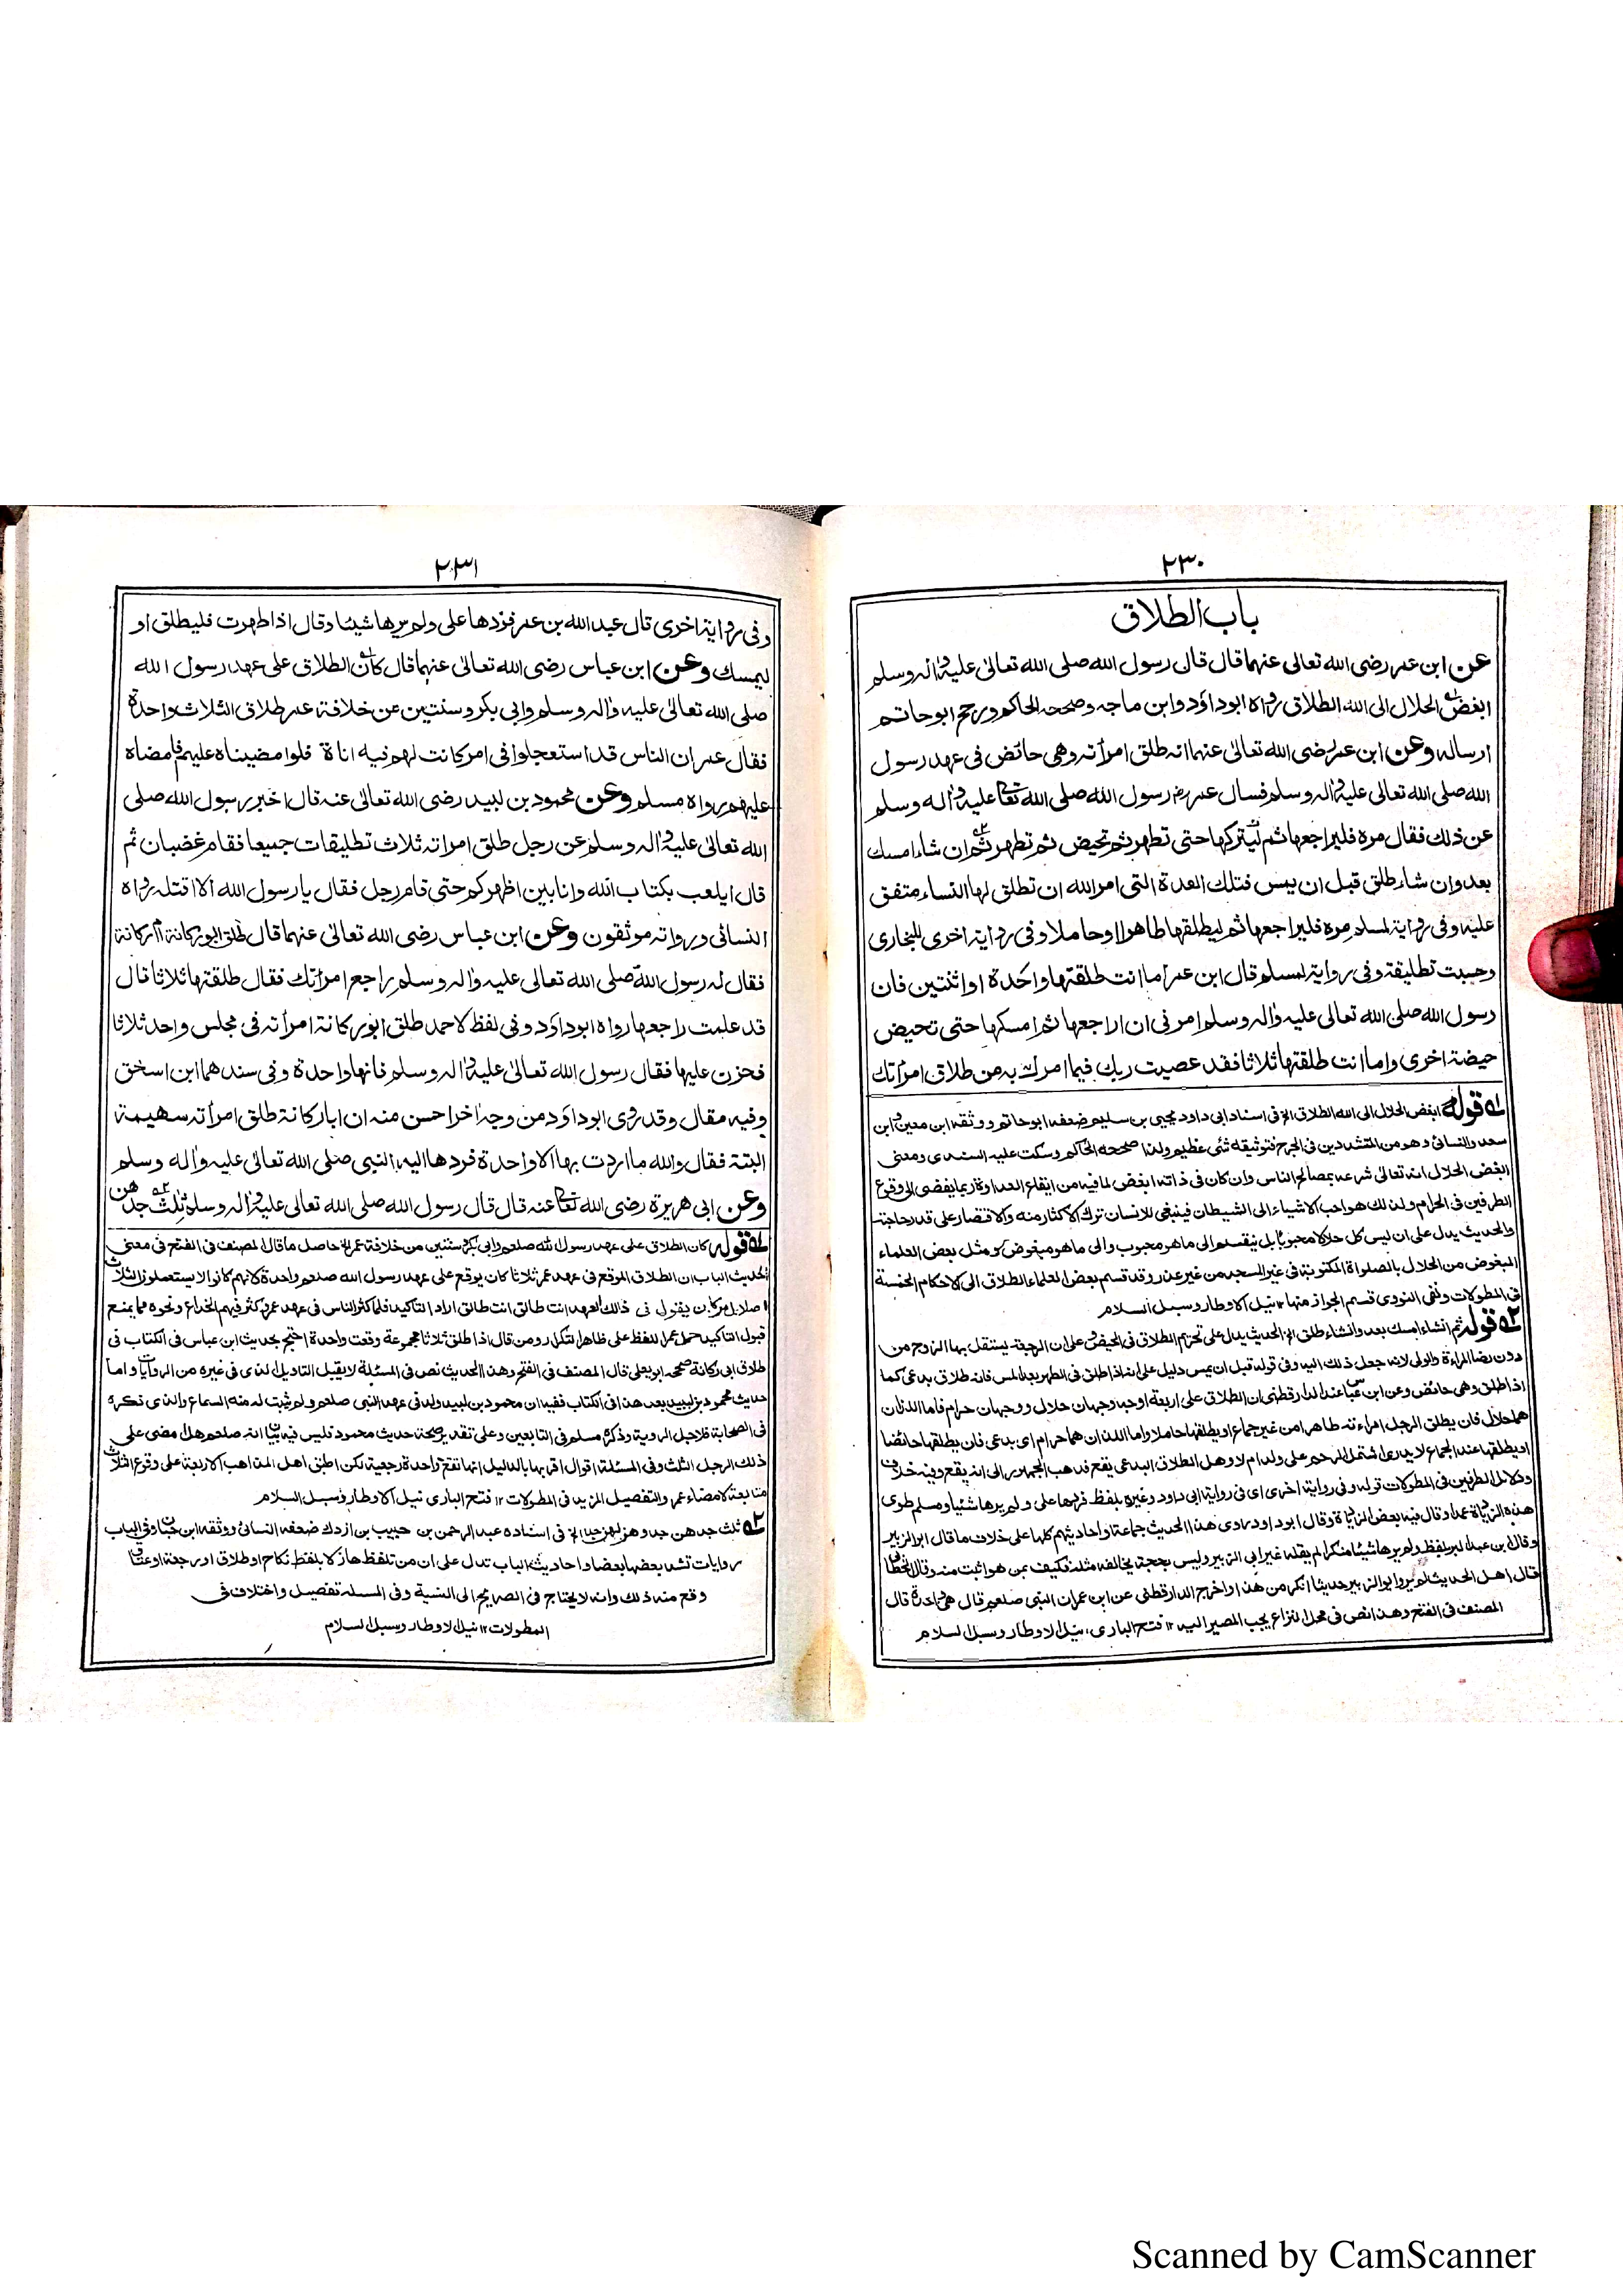 ٢٣٠
باب الطلاق
عن ابن عمر رضی الله تعالی عنهما قال قال رسول الله صلی الله تعالی علیه واٰله وسلم
ابغض الحلال الی الله الطلاق رواه ابوداؤد وابن ماجه وصححه الحاكم ورجح ابوحاتم
ارساله وعن ابن عمر رضی الله تعالی عنهما انه طلق امرأته وهی حائض فی عهد رسول
الله صلی الله تعالی علیه واٰله وسلم فسال عمر رض رسول الله صلی الله تعالی علیه واٰله وسلم
عن ذلك فقال مره فليراجعها ثم ليتركها حتی تطهر ثم تحيض ثم تطهر ثم ان شاء امسك
بعد وان شاء طلق قبل ان يمس فتلك العدة التی امر الله ان تطلق لها النساء متفق
عليه وفی رواية لمسلم مره فليراجعها ثم ليطلقها طاهرا او حاملا وفی رواية اخری للبخاری
وحسبت تطليقة وفی رواية لمسلم قال ابن عمر اما انت طلقتها واحدة او اثنتين فان
رسول الله صلی الله تعالی علیه واٰله وسلم امرنی ان اراجعها ثم امسكها حتی تحيض
حيضة اخری واما انت طلقتها ثلاثا فقد عصيت ربك فيما امرك به من طلاق امرأتك
١ه قوله ابغض الحلال الی الله الطلاق الخ فی اسناد ابی داود يحيی بن سليم ضعفه ابوحاتم ووثقه ابن معين وابن
سعد والنسائی وهو من المتشددين فی الجرح فتوثيقه شئ عظيم ولذا صححه الحاكم وسكت عليه السندی ومعنی
ابغض الحلال انه تعالی شرعه بمصالح الناس وان كان فی ذاته ابغض لما فيه من ايقاع العداوة ربما يفضی الی وقوع
الطرفين فی الحرام ولذلك هو احب الاشياء الی الشيطان فينبغی للانسان ترك الاكثار منه والاقتصار علی قدر حاجته
والحديث يدل علی ان ليس كل حلال محبوبا بل ينقسم الی ما هو محبوب والی ما هو مبغوض كومثل بعض العلماء
المبغوض من الحلال بالصلواة المكتوبة فی غير المسجد من غير عذر وقد قسم بعض العلماء الطلاق الی الاحكام الخمسة
فی المطولات ونفی النووی قسم الجواز منها ١٢ نيل الاوطار وسبل السلام
٢ه قوله ثم ان شاء امسك بعد وان شاء طلق الخ الحديث يدل علی تحريم الطلاق فی الحيض وعلی ان الرجعة يستقل بها الزوج من
دون رضا المراءة والولی لانه جعل ذلك اليه وفی قوله قبل ان يمس دليل علی انه اذا طلق فی الطهر بعد المس فانه طلاق بدعی كما
اذا طلق وهی حائض وعن ابن عباس عند الدارقطنی ان الطلاق علی اربعة اوجه وجهان حلال ووجهان حرام فاما اللذان
هما حلال فان يطلق الرجل امراءته طاهرا من غير جماع او يطلقها حاملا واما اللذان هما حرام ای بدعی فان يطلقها حائضا
او يطلقها عند الجماع لا يدری اشتمل الرحم علی ولد ام لا وهل الطلاق البدعی يقع فذهب الجمهور الی انه يقع وفيه خلاف
ودلائل الطرفين فی المطولات قوله وفی رواية اخری ای فی رواية ابی داود وغيره بلفظ فردها علی ولم يرها شيئا ومسلم طوی
هذه الزيادة عمدا وقال فيه بعض الزيادة وقال ابوداود روی هذا الحديث جماعة واحاديثهم كلها علی خلاف ما قال ابوالزبير
وقال ابن عبدالبر بلفظ ولم يرها شيئا منكر لم يقله غير ابی الزبير وليس بحجة يخالفه مثله فكيف بمن هو اثبت منه وقال الخطابی
قال اهل الحديث لم يرو ابوالزبير حديثا انكر من هذا واخرج الدارقطنی عن ابن عمر ان النبی صلعم قال هی واحدة قال
المصنف فی الفتح وهذا نص فی محل النزاع يجب المصير اليه ١٢ فتح الباری، نيل الاوطار وسبل السلام
٢٣١
وفی رواية اخری قال عبد الله بن عمر فردها علی ولم يرها شيئا وقال اذا طهرت فليطلق او
ليمسك وعن ابن عباس رضی الله تعالی عنهما قال كان الطلاق علی عهد رسول الله
صلی الله تعالی علیه واٰله وسلم وابی بكر وسنتين من خلافة عمر طلاق الثلاث واحدة
فقال عمر ان الناس قد استعجلوا فی امر كانت لهم فيه اناة فلو امضيناه عليهم فامضاه
عليهم رواه مسلم وعن محمود بن لبيد رضی الله تعالی عنه قال اخبر رسول الله صلی
الله تعالی علیه واٰله وسلم عن رجل طلق امراته ثلاث تطليقات جميعا فقام غضبان ثم
قال ايلعب بكتاب الله وانا بين اظهركم حتی قام رجل فقال يا رسول الله الا اقتله رواه
النسائی ورواته موثقون وعن ابن عباس رضی الله تعالی عنهما قال طلق ابوركانة ام ركانة
فقال له رسول الله صلی الله تعالی عليه واٰله وسلم راجع امرأتك فقال طلقتها ثلاثا قال
قد علمت راجعها رواه ابوداؤد وفی لفظ لاحمد طلق ابوركانة امرأته فی مجلس واحد ثلاثا
فحزن عليها فقال رسول الله تعالی عليه واٰله وسلم فانها واحدة وفی سندهما ابن اسحٰق
وفيه مقال وقد روی ابوداؤد من وجه اخر احسن منه ان اباركانة طلق امرأته سهيمة
البتة فقال والله ما اردت بها الا واحدة فردها اليه النبی صلی الله تعالی عليه واٰله وسلم
وعن ابی هريرة رضی الله تعالی عنه قال قال رسول الله صلی الله تعالی عليه واٰله وسلم ثلٰث جدهن
١ه قوله كان الطلاق علی عهد رسول الله صلعم وابی بكر وسنتين من خلافة عمر الخ حاصل ما قال المصنف فی الفتح فی معنی
حديث الباب ان الطلاق الموقع فی عهد عمر ثلاثا كان يوقع علی عهد رسول الله صلعم واحدة لانهم كانوا لا يستعملون الثلاث
اصلا بل من كان يقول فی ذالك العهد انت طالق انت طالق اراد التاكيد فلما كثر الناس فی عهد عمر وكثر فيهم الخداع ونحوه مما يمنع
قبول التاكيد حمل عمر اللفظ علی ظاهر التكرار ومن قال اذا طلق ثلاثا مجموعة وقعت واحدة احتج بحديث ابن عباس فی الكتاب فی
طلاق ابی ركانة صححه ابويعلی قال المصنف فی الفتح وهذا الحديث نص فی المسئلة لا يقبل التاويل الذی فی غيره من الروايات واما
حديث محمود بن لبيد بعد هذا فی الكتاب ففيه ان محمود بن لبيد ولد فی عهد النبی صلعم ولم يثبت له منه السماع والذی ذكره
فی الصحابة فلاجل الروية وذكره مسلم فی التابعين وعلی تقدير صحة حديث محمود فليس فيه بيان انه صلعم هل امضی علی
ذلك الرجل الثلث وفی المسئلة اقوال اقربها بالدليل انها تقع واحدة رجعية لكن اطبق اهل المذاهب الاربعة علی وقوع الثلاث
متابعة لامضاء عمر والتفصيل المزيد فی المطولات ١٢ فتح الباری نيل الاوطار وسبل السلام
٢ه ثلث جدهن جد وهزلهن جد الخ فی اسناده عبد الرحمن بن حبيب بن ازدك ضعفه النسائی ووثقه ابن حبان وفی الباب
روايات تشد بعضها بعضا واحاديث الباب تدل علی ان من تلفظ هازلا بلفظ نكاح او طلاق او رجعة او عتاق
وقع منه ذلك وانه لا يحتاج فی الصريح الی النية وفی المسئلة تفصيل واختلاف فی
المطولات ١٢ نيل الاوطار وسبل السلام
Scanned by CamScanner